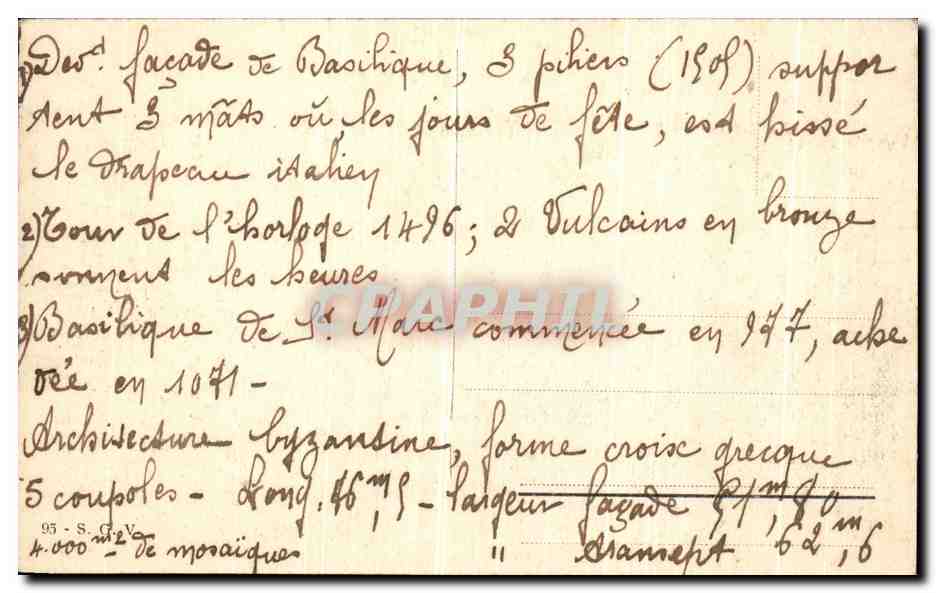 1) Devt façade de Basilique, 3 piliers (1505) suppor
tent 3 mâts où, les jours de fête, est hissé
le drapeau italien
2) Tour de l'horloge 1496; 2 Vulcains en bronze
sonnent les heures
CPAPHIL
3) Basilique de St Marc commencée en 977, ache
vée en 1071 -
Architecture byzantine, forme croix grecque
5 coupoles - Long. 76m,5 - largeur façade 51m,80
95 - S. G. V.
4.000 m2 de mosaïques " transept 62m,6